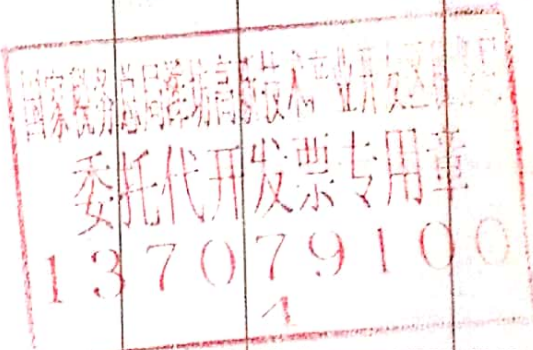 国家税务总局潍坊高新技术产业开发区税务局
委托代开发票专用章
137079100
1